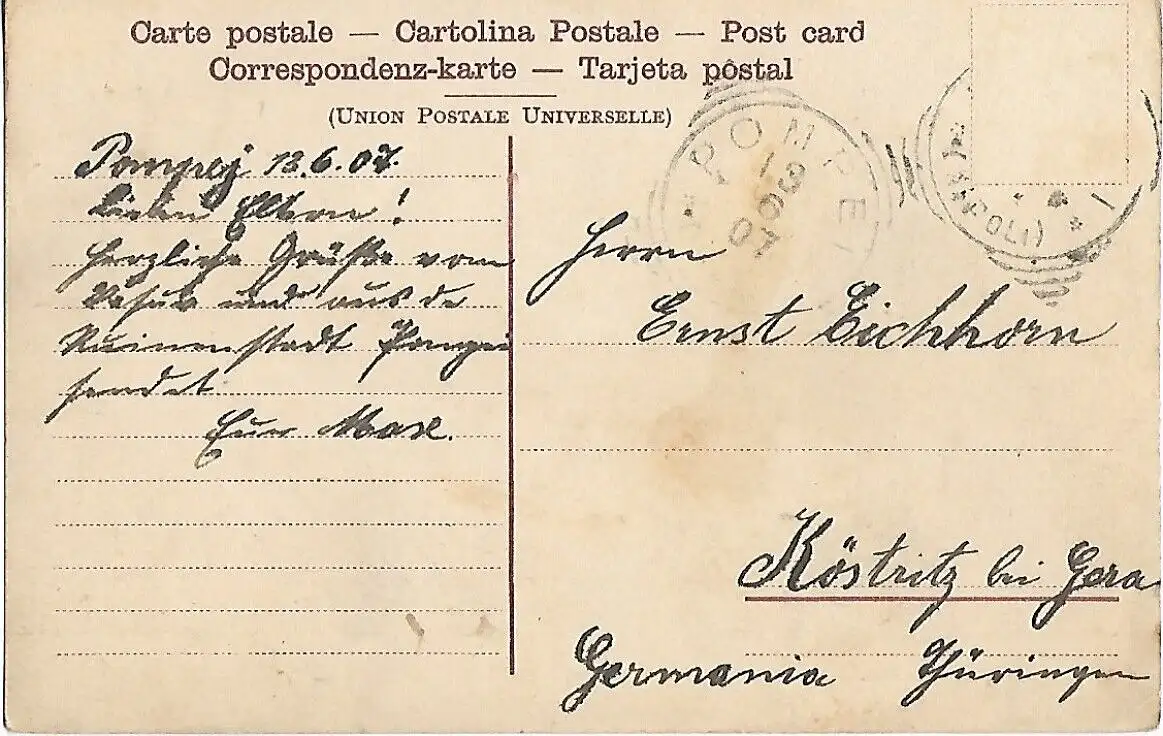 Carte postale — Cartolina Postale — Post card
Correspondenz-karte — Tarjeta postal
(Union Postale Universelle)
Pompej 13.6.07.
Lieben Eltern!
Herzliche Grüße vom
Vesuv und aus de
Ruinenstadt Pompei
sendet
Euer Max.
POMPEI
13
6
07
(NAPOLI)
Herrn
Ernst Eichhorn
Köstritz bei Gera
Germania Thüringen